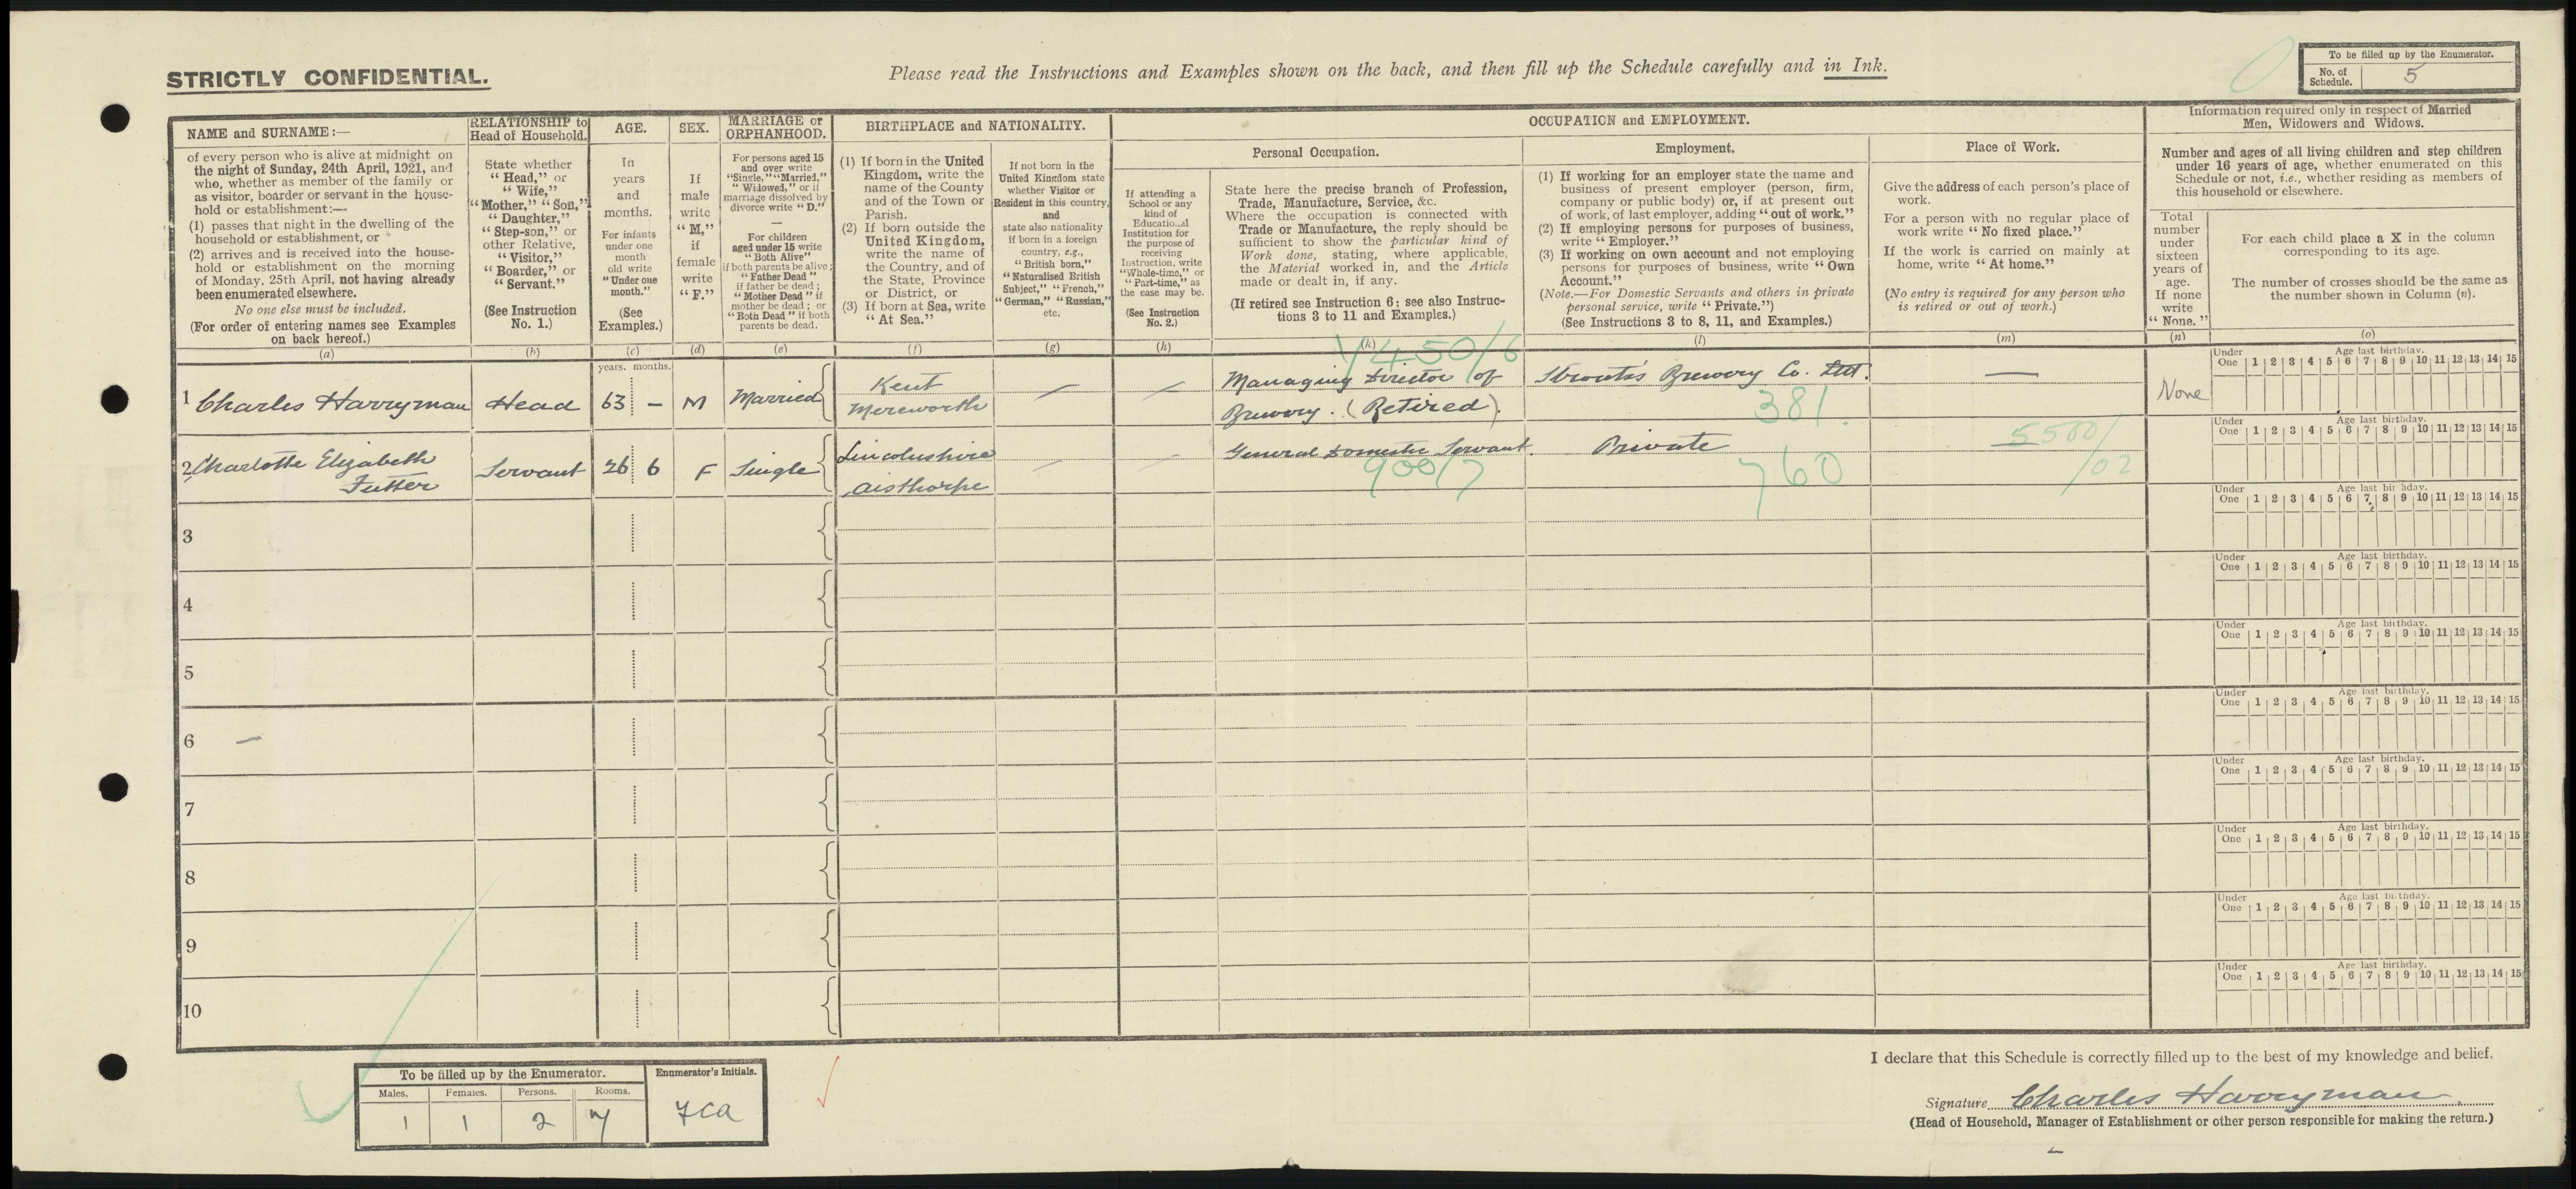 STRICTLY CONFIDENTIAL.
Please read the Instructions and Examples shown on the back, and then fill up the Schedule carefully and in Ink.
To be filled up by the Enumerator.
No. of Schedule. 5
NAME and SURNAME:—
of every person who is alive at midnight on
the night of Sunday, 24th April, 1921, and
who, whether as member of the family or
as visitor, boarder or servant in the house-
hold or establishment:—
(1) passes that night in the dwelling of the
household or establishment, or
(2) arrives and is received into the house-
hold or establishment on the morning
of Monday, 25th April, not having already
been enumerated elsewhere.
No one else must be included.
(For order of entering names see Examples
on back hereof.)
(a)
RELATIONSHIP to
Head of Household.
State whether
"Head," or
"Wife,"
"Mother," "Son,"
"Daughter,"
"Step-son," or
other Relative,
"Visitor,"
"Boarder," or
"Servant."
(See Instruction
No. 1.)
(b)
AGE.
In
years
and
months.
For infants
under one
month
old write
"Under one
month."
(See
Examples.)
(c)
SEX.
If
male
write
"M,"
if
female
write
"F."
(d)
MARRIAGE or
ORPHANHOOD.
For persons aged 15
and over write
"Single," "Married,"
"Widowed," or if
marriage dissolved by
divorce write "D."
—
For children
aged under 15 write
"Both Alive"
if both parents be alive;
"Father Dead"
if father be dead;
"Mother Dead" if
mother be dead; or
"Both Dead" if both
parents be dead.
(e)
BIRTHPLACE and NATIONALITY.
(1) If born in the United
Kingdom, write the
name of the County
and of the Town or
Parish.
(2) If born outside the
United Kingdom,
write the name of
the Country, and of
the State, Province
or District, or
(3) If born at Sea, write
"At Sea."
(f)
If not born in the
United Kingdom state
whether Visitor or
Resident in this country,
and
state also nationality
if born in a foreign
country, e.g.,
"British born,"
"Naturalised British
Subject," "French,"
"German," "Russian,"
etc.
(g)
OCCUPATION and EMPLOYMENT.
Personal Occupation.
If attending a
School or any
kind of
Educational
Institution for
the purpose of
receiving
Instruction, write
"Whole-time," or
"Part-time," as
the case may be.
(See Instruction
No. 2.)
(h)
State here the precise branch of Profession,
Trade, Manufacture, Service, &c.
Where the occupation is connected with
Trade or Manufacture, the reply should be
sufficient to show the particular kind of
Work done, stating, where applicable,
the Material worked in, and the Article
made or dealt in, if any.
(If retired see Instruction 6; see also Instruc-
tions 3 to 11 and Examples.)
(k)
Employment.
(1) If working for an employer state the name and
business of present employer (person, firm,
company or public body) or, if at present out
of work, of last employer, adding "out of work."
(2) If employing persons for purposes of business,
write "Employer."
(3) If working on own account and not employing
persons for purposes of business, write "Own
Account."
(Note.—For Domestic Servants and others in private
personal service, write "Private.")
(See Instructions 3 to 8, 11, and Examples.)
(l)
Place of Work.
Give the address of each person's place of
work.
For a person with no regular place of
work write "No fixed place."
If the work is carried on mainly at
home, write "At home."
(No entry is required for any person who
is retired or out of work.)
(m)
Information required only in respect of Married
Men, Widowers and Widows.
Number and ages of all living children and step children
under 16 years of age, whether enumerated on this
Schedule or not, i.e., whether residing as members of
this household or elsewhere.
Total
number
under
sixteen
years of
age.
If none
write
"None."
(n)
For each child place a X in the column
corresponding to its age.
The number of crosses should be the same as
the number shown in Column (n).
(o)
years. months.
1 Charles Harryman Head 63 — M Married Kent
Mereworth
Managing Director of
Brewery. (Retired).
450/6
Brewery Co. Ltd.
381
—
None
Under One 1 2 3 4 5 6 7 8 9 10 11 12 13 14 15
Age last birthday.
2 Charlotte Elizabeth
Futter
Servant 26 6 F Single Lincolnshire
Aisthorpe
General Domestic Servant.
900/7
Private
760
5500/
/02
Under One 1 2 3 4 5 6 7 8 9 10 11 12 13 14 15
Age last birthday.
3
Under One 1 2 3 4 5 6 7 8 9 10 11 12 13 14 15
Age last birthday.
4
Under One 1 2 3 4 5 6 7 8 9 10 11 12 13 14 15
Age last birthday.
5
Under One 1 2 3 4 5 6 7 8 9 10 11 12 13 14 15
Age last birthday.
6 —
Under One 1 2 3 4 5 6 7 8 9 10 11 12 13 14 15
Age last birthday.
7
Under One 1 2 3 4 5 6 7 8 9 10 11 12 13 14 15
Age last birthday.
8
Under One 1 2 3 4 5 6 7 8 9 10 11 12 13 14 15
Age last birthday.
9
Under One 1 2 3 4 5 6 7 8 9 10 11 12 13 14 15
Age last birthday.
10
Under One 1 2 3 4 5 6 7 8 9 10 11 12 13 14 15
Age last birthday.
To be filled up by the Enumerator.
Males. Females. Persons. Rooms.
1 1 2 7
Enumerator's Initials.
I declare that this Schedule is correctly filled up to the best of my knowledge and belief.
Signature Charles Harryman
(Head of Household, Manager of Establishment or other person responsible for making the return.)